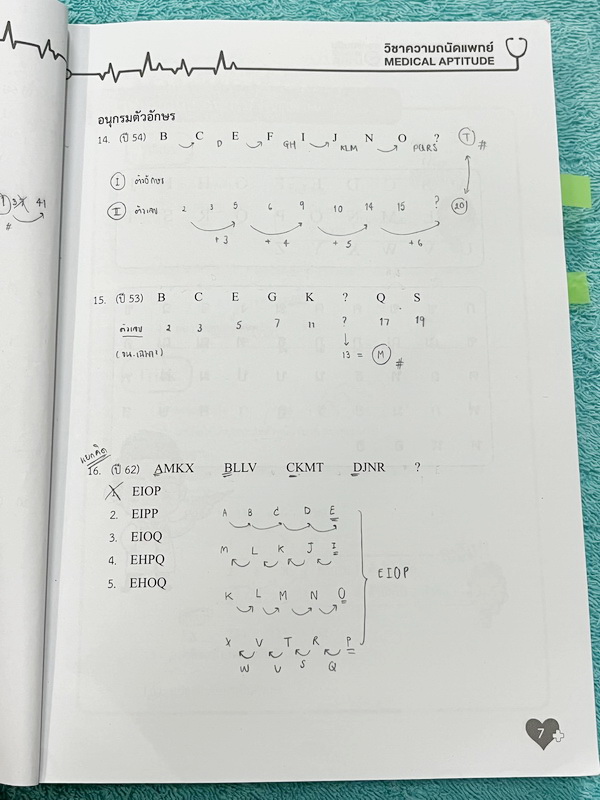 วิชาความถนัดแพทย์
MEDICAL APTITUDE
อนุกรมตัวอักษร
14. (ปี 54) B C E F I J N O ? T #
D GH KLM PQRS
I ตัวอักษร
II ตัวเลข 2 3 5 6 9 10 14 15 ? 20
+3 +4 +5 +6
3 41
#
15. (ปี 53) B C E G K ? Q S
ตัวเลข 2 3 5 7 11 ? 17 19
13 = M #
แยกคิด
16. (ปี 62) AMKX BLLV CKMT DJNR ?
1. EIOP
2. EIPP
3. EIOQ
4. EHPQ
5. EHOQ
A B C D E
M L K J I
EIOP
K L M N O
X V T R P
W U S Q
7